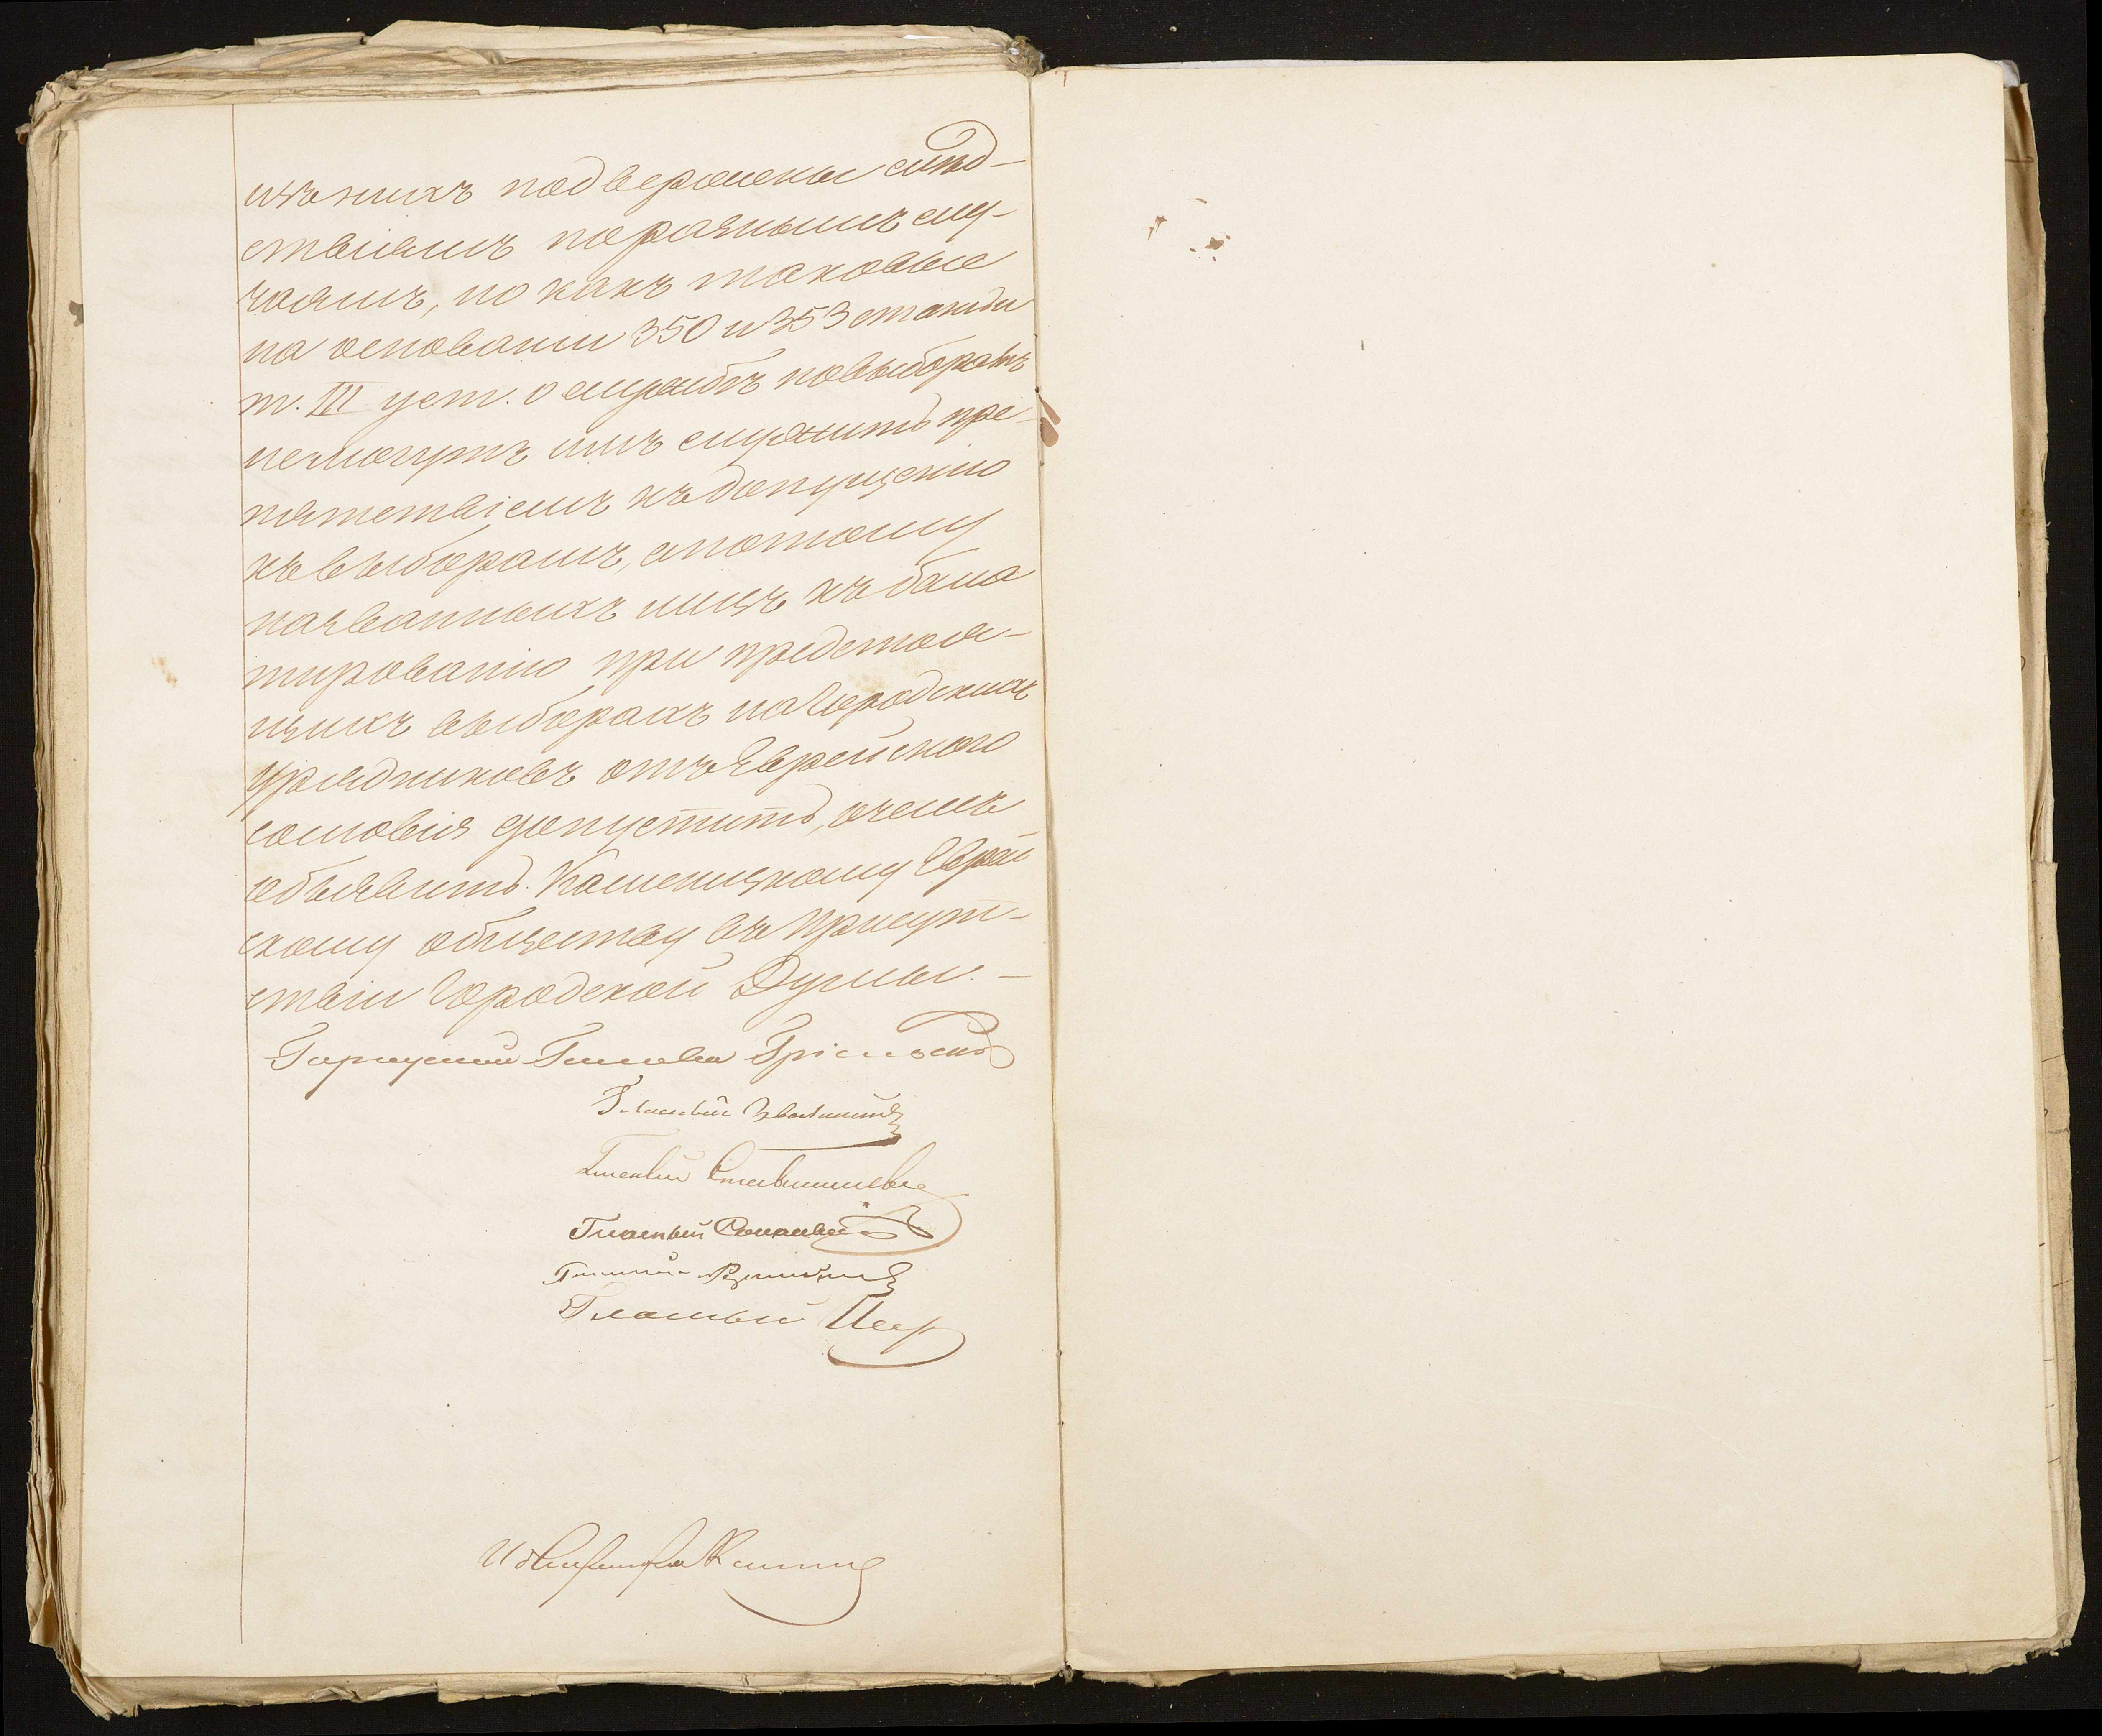 изъ нихъ подвержены слѣд-
ствіямъ поразнымъ слу-
чаямъ, но какъ таковые
на основаніи 350 и 353 статьи
т. III уст. о службѣ повыборамъ
немогутъ имъ служить пре-
пятствіемъ къ допущенію
къ выборамъ, а потому
названныхъ лицъ къ бала
тированію при предстоя-
щихъ выборахъ на Городскихъ
урядниковъ отъ Еврейскаго
сословія допустить, о чемъ
объявить Каменецкому Еврей
скому обществу въ присут-
ствіи Городской Думы. —
Городской Голова
Гласный
Гласный
Гласный
Гласный
Гласный